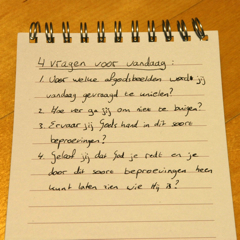 4 vragen voor vandaag:
1. Voor welke afgodsbeelden word jij
vandaag gevraagd te knielen?
2. Hoe ver ga jij om niet te buigen?
3. Ervaar jij Gods hand in dit soort
beproevingen?
4. Geloof jij dat God je redt en je
door dit soort beproevingen heen
kunt laten zien wie Hij is?